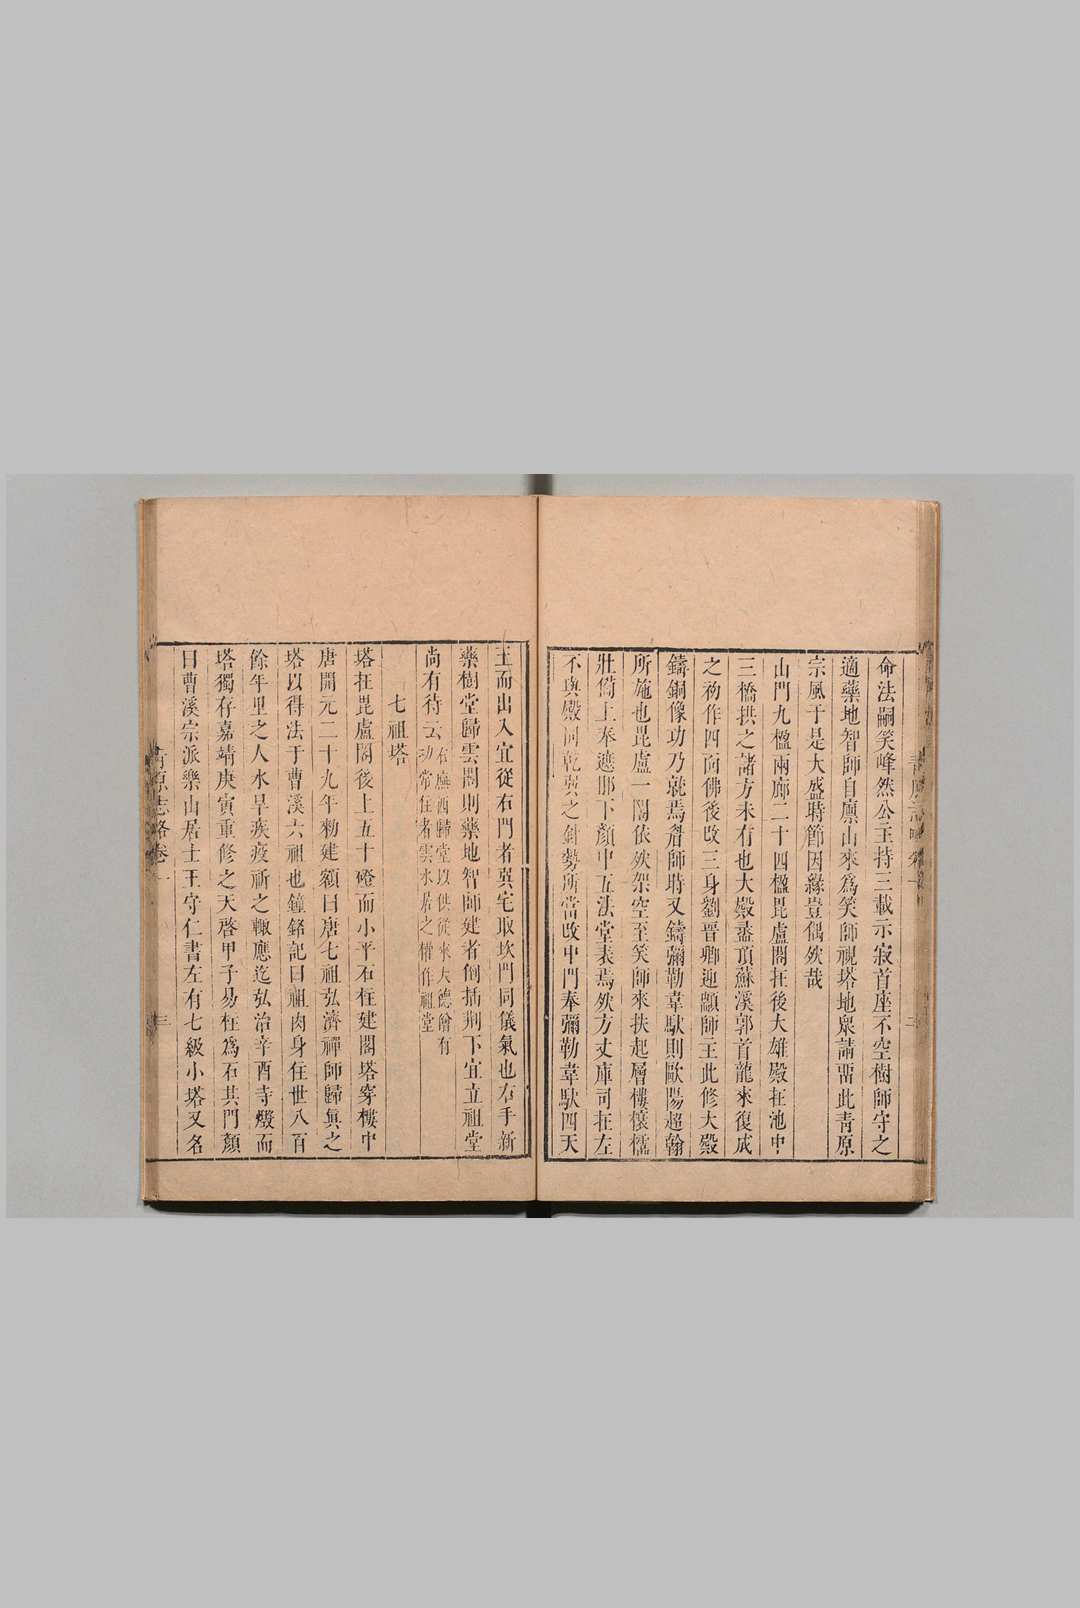 命法嗣笑峰然公主持三載示寂首座不空樹師守之
適藥地智師自廪山來爲笑師視塔地衆請畱此青原
宗風于是大盛時節因緣豈偶然哉
山門九楹兩廊二十四楹毘盧閣在後大雄殿在池中
三橋拱之諸方未有也大殿蓋頂蘇溪郭首龍來復成
之初作四面佛後改三身劉晉卿迎顓師主此修大殿
鑄銅像功乃就焉眷師時又鑄彌勒韋馱則歐陽超翰
所施也毘盧一閣依然架空至笑師來扶起層樓欀檽
壯偹上奉遮那下顏中五法堂表焉然方丈庫司在左
不與殿同乾巽之針勢所當改中門奉彌勒韋馱四天
王而出入宜從右門者巽宅取坎門同儀氣也右手新
藥樹堂歸雲閣則藥地智師建者倒插荆下宜立祖堂
尚有待云
右廡西歸堂以供從來大德曾有
功常住者雲水居之權作祖堂
七祖塔
塔在毘盧閣後上五十磴而小平石柱建閣塔穿樓中
唐開元二十九年勑建額曰唐七祖弘濟禪師歸眞之
塔以得法于曹溪六祖也鐘銘記曰祖肉身住世八百
餘年里之人水旱疾疫祈之輒應迄弘治辛酉寺燬而
塔獨存嘉靖庚寅重修之天啓甲子易柱爲石其門顏
曰曹溪宗派樂山居士王守仁書左有七級小塔又名
青原志略卷一
三